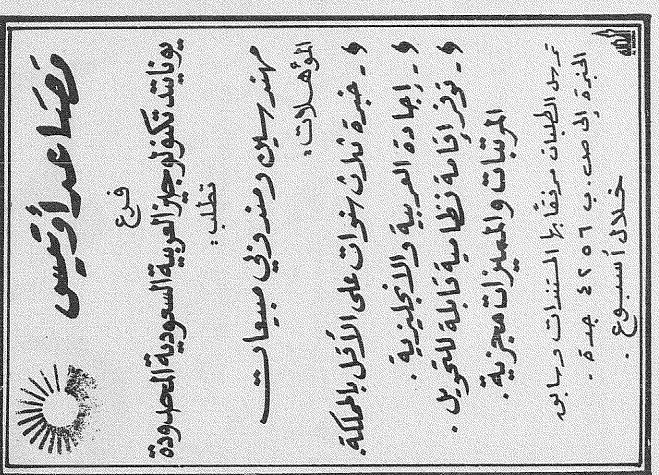 مصاعد أوتيس
فرع
يونايتد تكنولوجيز العربية السعودية المحدودة
تطلب:
مهندسين ومندوبي مبيعات
المؤهلات:
و- خبرة ثلاث سنوات على الأقل بالمملكة.
و- إجادة العربية والانجليزية.
و- توفر إقامة نظامية قابلة للتحويل.
المرتبات والمميزات مجزية.
ترسل الطلبات مرفقا بها المستندات وسابق
الخبرة إلى ص. ب ٤٢٥٦ جدة.
خلال أسبوع.